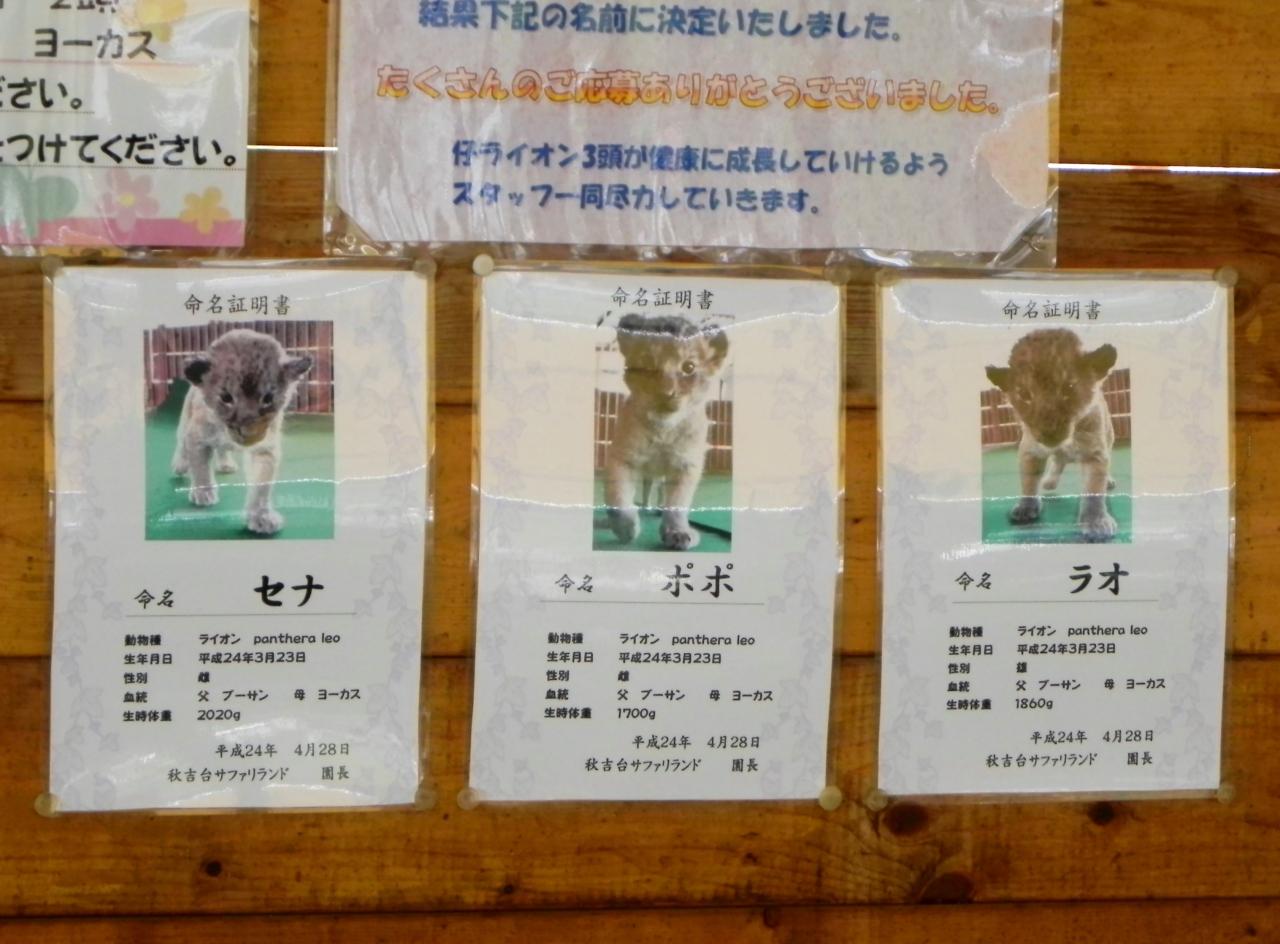 ヨーカス
ださい。
つけてください。
結果下記の名前に決定いたしました。
たくさんのご応募ありがとうございました。
仔ライオン3頭が健康に成長していけるよう
スタッフ一同尽力していきます。
命名証明書
命名 セナ
動物種 ライオン panthera leo
生年月日 平成24年3月23日
性別 雌
血統 父 ブーサン 母 ヨーカス
生時体重 2020g
平成24年 4月28日
秋吉台サファリランド 園長
命名証明書
命名 ポポ
動物種 ライオン panthera leo
生年月日 平成24年3月23日
性別 雌
血統 父 ブーサン 母 ヨーカス
生時体重 1700g
平成24年 4月28日
秋吉台サファリランド 園長
命名証明書
命名 ラオ
動物種 ライオン panthera leo
生年月日 平成24年3月23日
性別 雄
血統 父 ブーサン 母 ヨーカス
生時体重 1860g
平成24年 4月28日
秋吉台サファリランド 園長